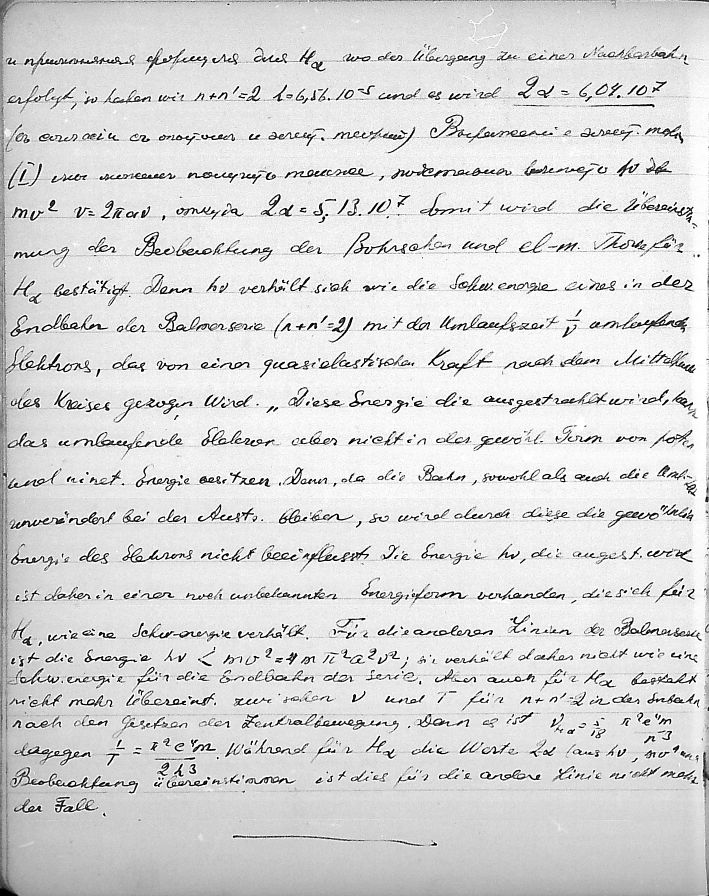 и применяя формулу для Hα wo der Übergang zu einer Nachbarbahn
erfolgt, so haben wir n+n'=2 h=6,56.10⁻⁵ und es wird 2α = 6,04.10⁷
(въ согласіи съ опытомъ и элект. теоріей) Выраженіе элект. теор.
(I) мы можемъ получить также, подставивъ вмѣсто hν
mv² v=2παν, откуда 2α=5,13.10⁷. Somit wird die Übereinstim-
mung der Beobachtung der Bohrschen und el-m. Theorie für
Hα bestätigt. Denn hν verhält sich wie die Schw. energie eines in der
Endbahn der Balmerserie (n+n'=2) mit der Umlaufszeit 1/ν umlaufenden
Elektrons, das von einer quasielastischen Kraft nach dem Mittelpunkt
des Kreises gezogen wird. „Diese Energie die ausgestrahlt wird, kann
das umlaufende Elektron aber nicht in der gewöhl. Form von poten
und kinet. Energie besitzen. Denn, da die Bahn, sowohl als auch die
unverändert bei der Ausst. bleiben, so wird durch diese die gewöhnliche
Energie des Elektrons nicht beeinflusst. Die Energie hν, die ausgest. wird
ist daher in einer noch unbekannten Energieform vorhanden, die sich für
Hα, wie eine Schw-energie verhält. Für die anderen Linien der Balmerserie
ist die Energie hν < mv²=4mπ²a²ν²; sie verhält daher nicht wie eine
Schw. energie für die Endbahn der Serie. Aber auch für Hα besteht
nicht mehr Übereinst. zwischen ν und T für n+n'=2 in der
nach den Gesetzen der Zentralbewegung. Denn es ist ν_Hα = 5/18 π²e⁴m/h³
dagegen 1/T = π²e⁴m/2h³. Während für Hα die Werte 2α (aus hν, mv² und
Beobachtung übereinstimmen ist dies für die andere Linie nicht mehr
der Fall.